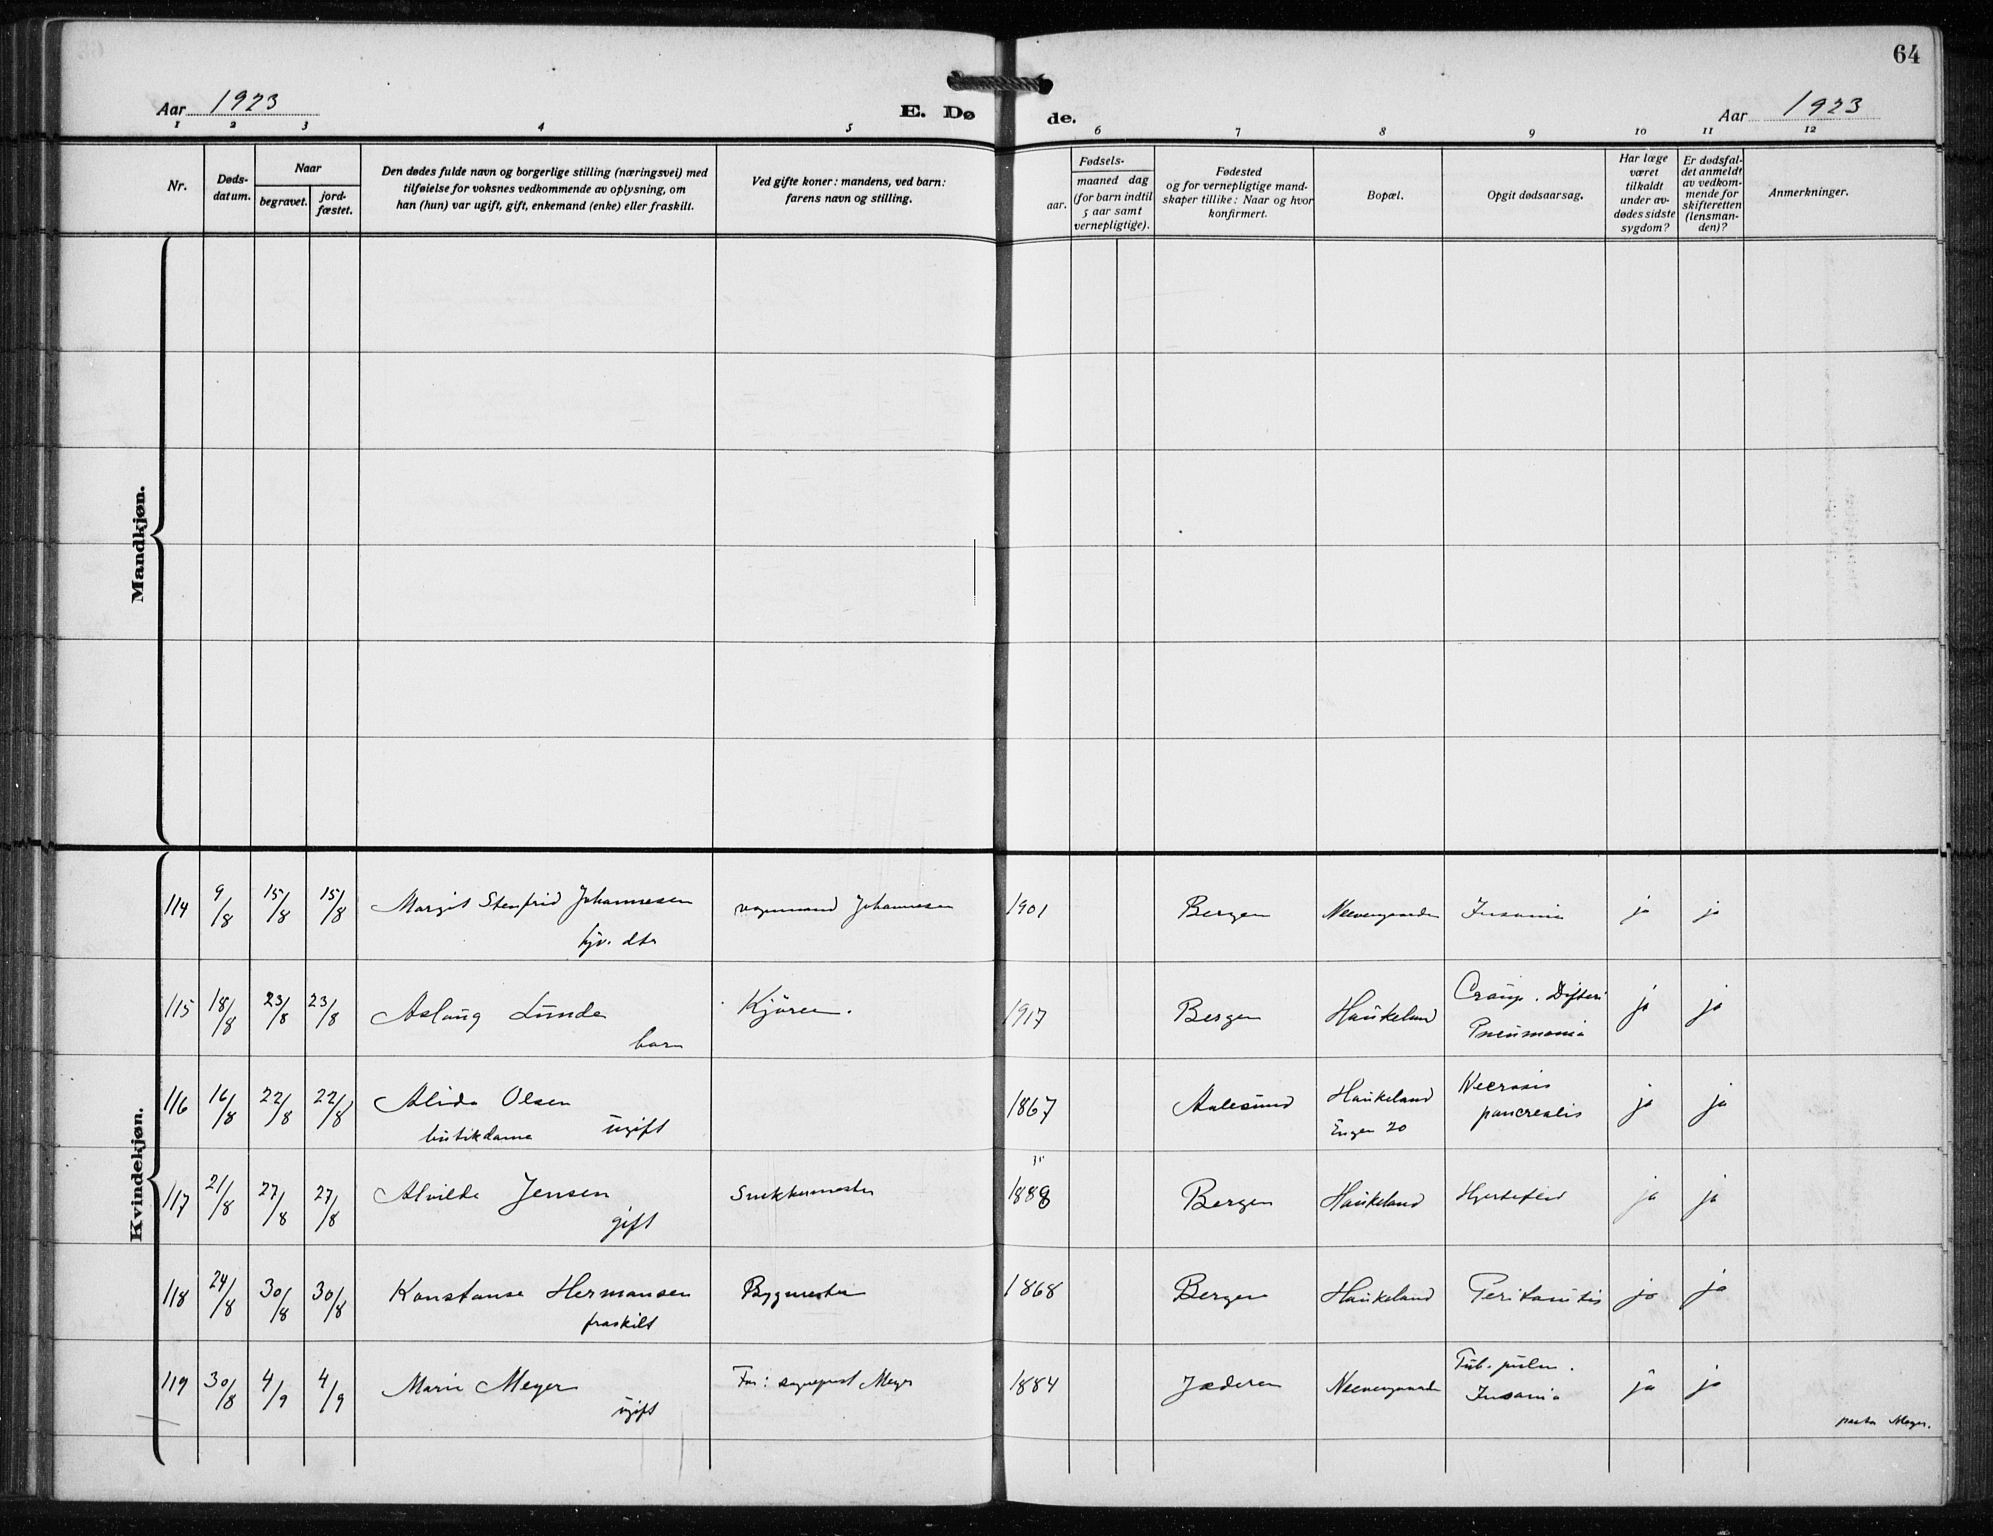 64
Aar 1923
E. Dø de.
Aar 1923
1 2 3 4 5 6 7 8 9 10 11 12
Nr.
Døds-
datum.
Naar
begravet.
jord-
fæstet.
Den dødes fulde navn og borgerlige stilling (næringsvei) med
tilføielse for voksnes vedkommende av oplysning, om
han (hun) var ugift, gift, enkemand (enke) eller fraskilt.
Ved gifte koner: mandens, ved barn:
farens navn og stilling.
Fødsels-
aar.
maaned dag
(for barn indtil
5 aar samt
vernepligtige).
Fødested
og for vernepligtige mand-
skaper tillike: Naar og hvor
konfirmert.
Bopæl.
Opgit dødsaarsag.
Har læge
været
tilkaldt
under av-
dødes sidste
sygdom?
Er dødsfal-
det anmeldt
av vedkom-
mende for
skifteretten
(lensman-
den)?
Anmerkninger.
Mandkjøn.
Kvindekjøn.
114 9/8 15/8 15/8 Margit Stenfrid Johannesen vognmand Johannesen 1901 Bergen Neevengaarden Insania ja ja
hjv. dtr
115 18/8 23/8 23/8 Aslaug Lunde Kjøren. 1917 Bergen Haukeland Croup. Difteri ja ja
barn Pneumonia
116 16/8 22/8 22/8 Alida Olsen 1867 Aalesund Haukeland Necrosis ja ja
butikdame ugift Engen 20 pancrealis
117 21/8 27/8 27/8 Alvilde Jensen Snekkermester 1888 Bergen Haukeland Hjertefeil ja ja
gift
118 24/8 30/8 30/8 Konstanse Hermansen Bygmester 1868 Bergen Haukeland Peritonitis ja ja
fraskilt
119 30/8 4/9 4/9 Marie Meyer Far: sogneprest Meyer 1884 Jæderen Neevengaarden Tub. pulm. ja ja
ugift Insania
pastor Meyer.